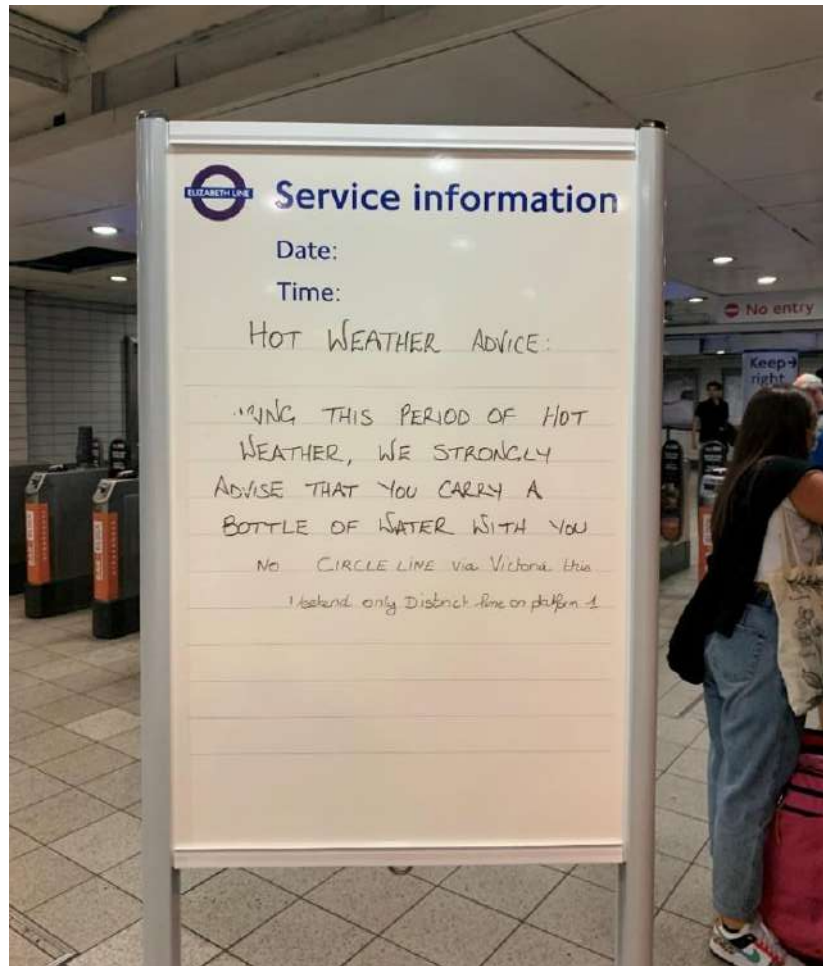 ELIZABETH LINE
Service information
Date:
Time:
HOT WEATHER ADVICE:
THIS PERIOD OF HOT
WEATHER, WE STRONGLY
ADVISE THAT YOU CARRY A
BOTTLE OF WATER WITH YOU
NO CIRCLE LINE via Victoria this
only District line on platform 1
No entry
Keep
right